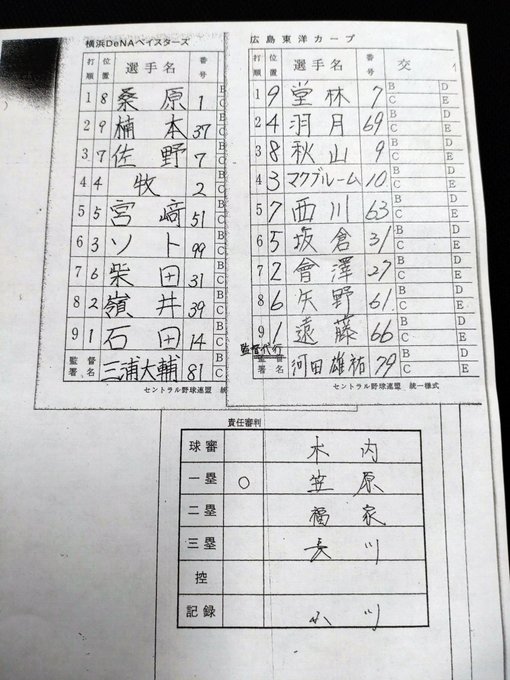 横浜DeNAベイスターズ
打順 位置 選手名 番号
1 8 桑原 1 B C
2 9 楠本 37 B C
3 7 佐野 7 B C
4 4 牧 2 B C
5 5 宮﨑 51 B C
6 3 ソト 99 B C
7 6 柴田 31 B C
8 2 嶺井 39 B C
9 1 石田 14 B C
監督署名 三浦大輔 81 B C
セントラル野球連盟 統一
広島東洋カープ
打順 位置 選手名 番号 交
1 9 堂林 7 B C D E
2 4 羽月 69 B C D E
3 8 秋山 9 B C D E
4 3 マクブルーム 10 B C D E
5 7 西川 63 B C D E
6 5 坂倉 31 B C D E
7 2 會澤 27 B C D E
8 6 矢野 61 B C D E
9 1 遠藤 66 B C D E
監督代行
監督署名 河田雄祐 79 B C D E
セントラル野球連盟 統一様式
責任審判
球審 木内
一塁 ○ 笠原
二塁 福家
三塁 長川
控
記録 小川